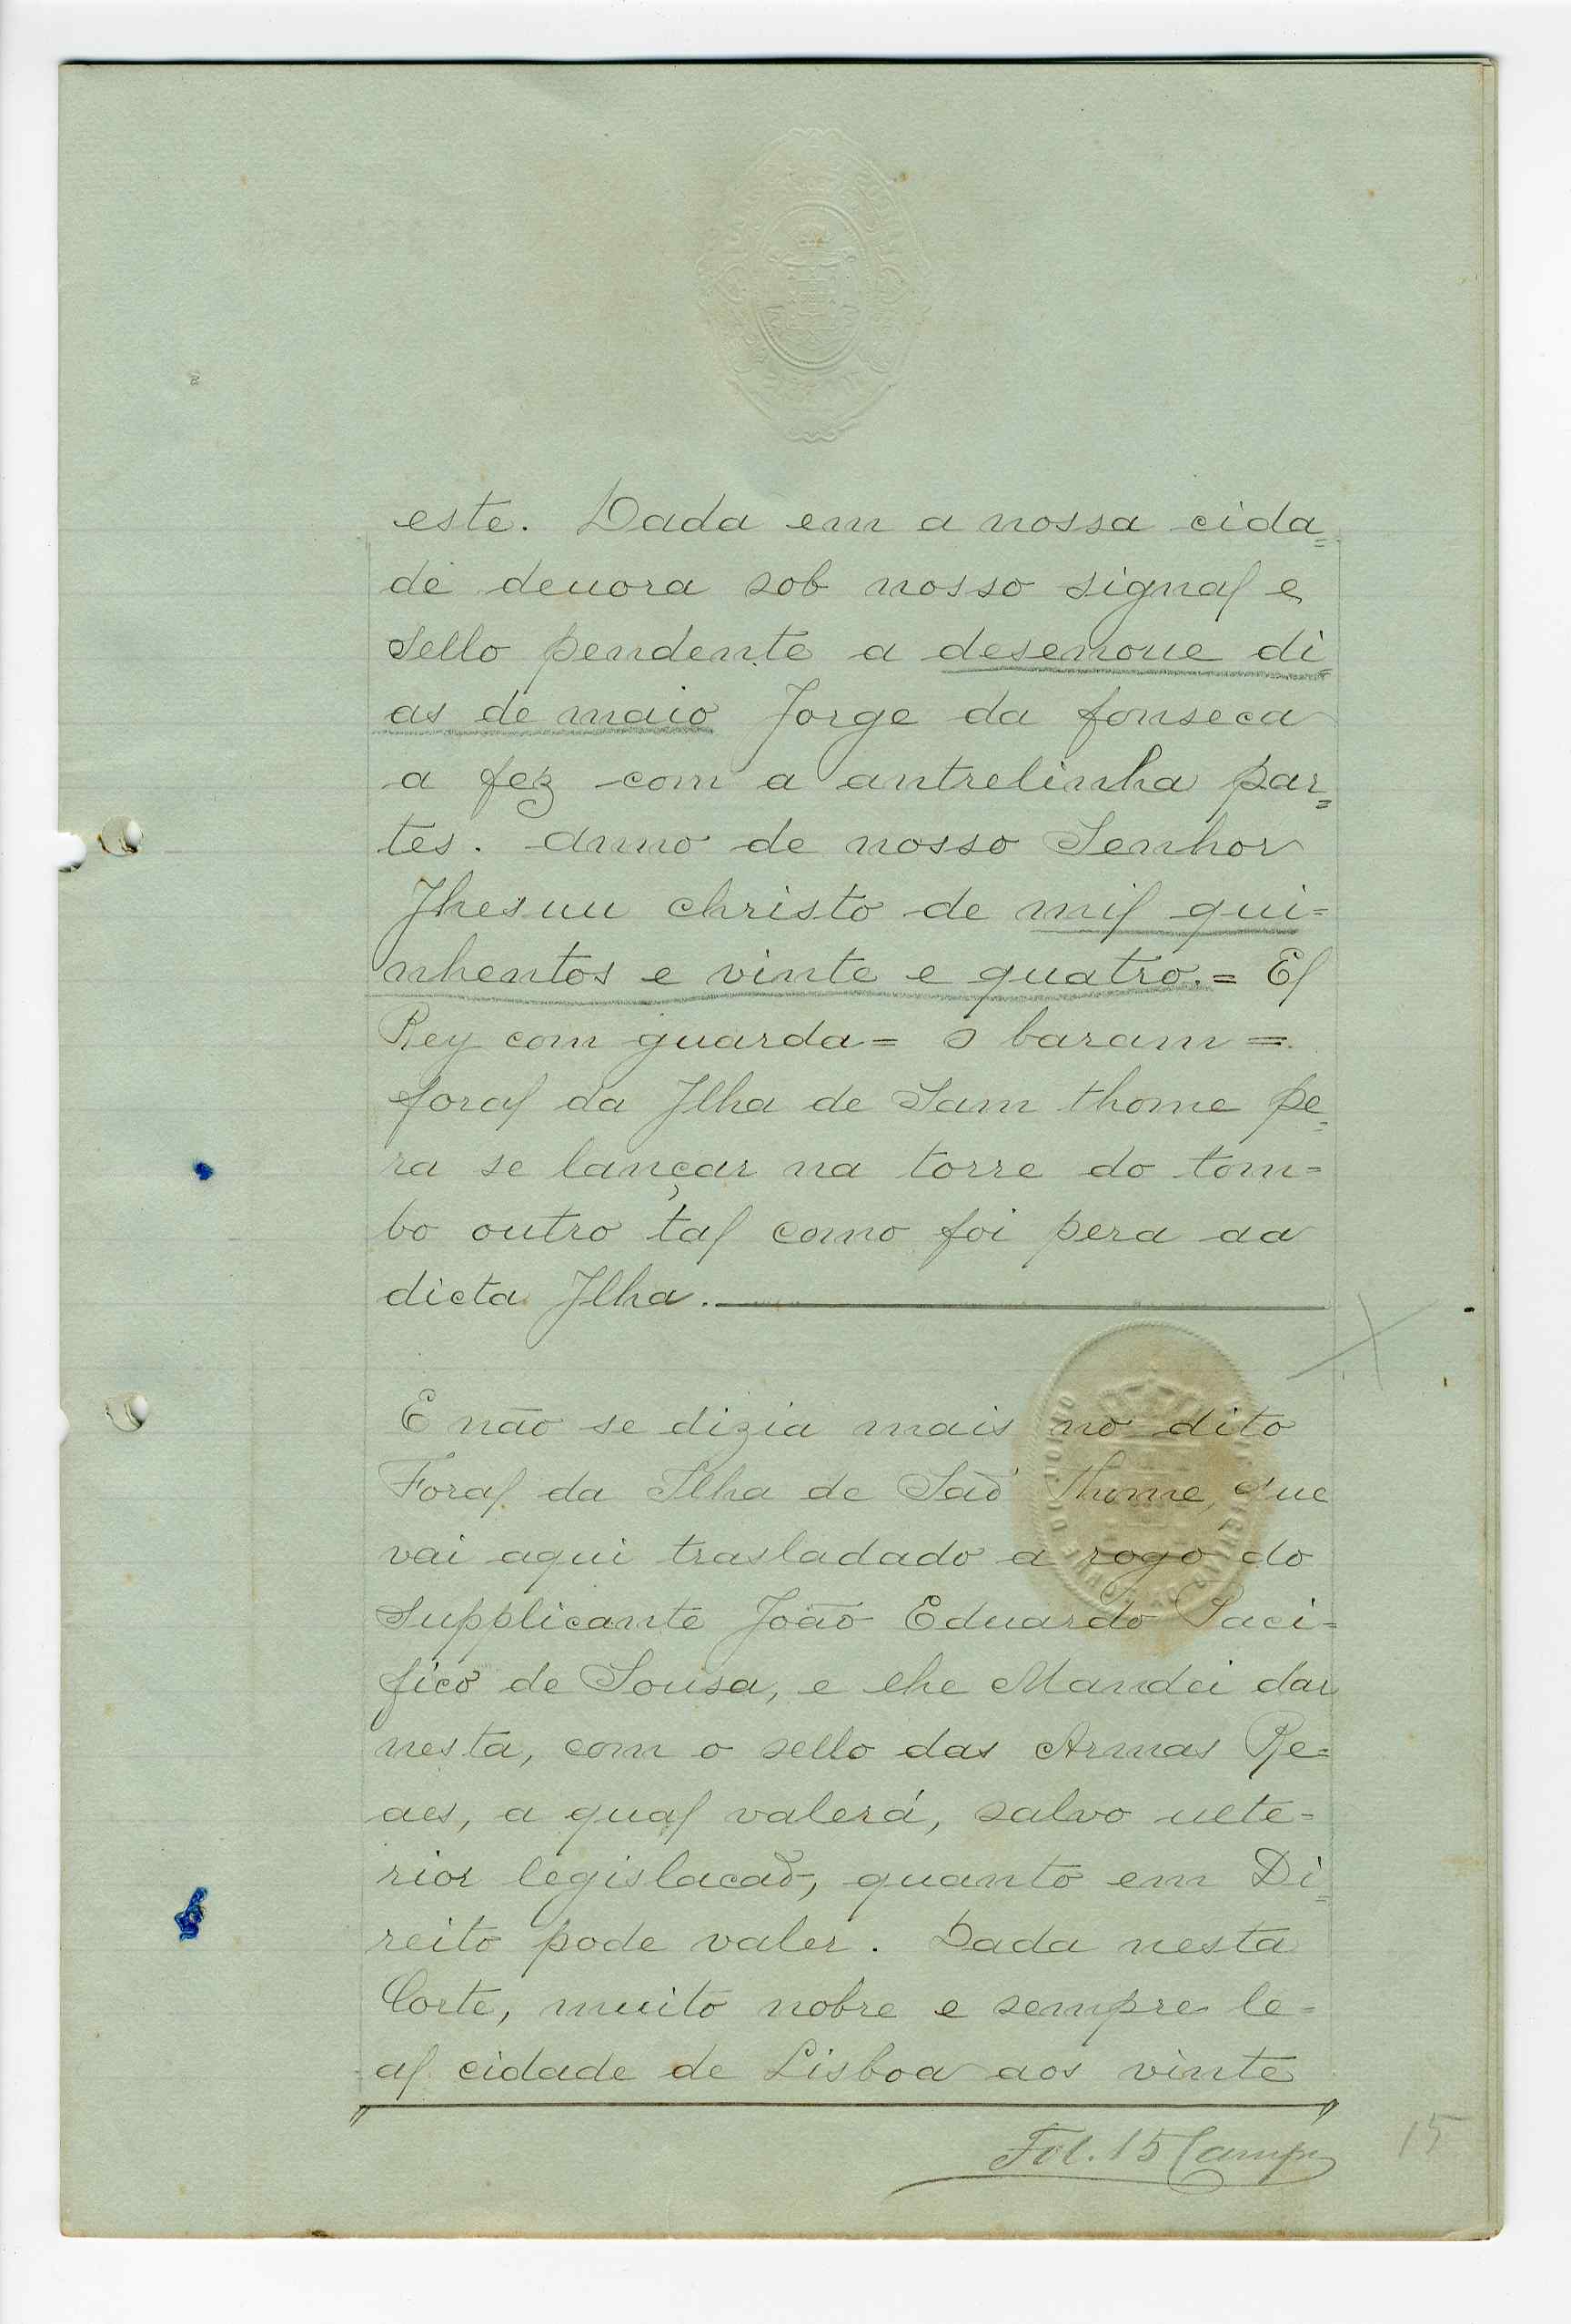 este. Dada em a nossa cida=
de deuora sob nosso signal e
sello pendente a desenoue di=
as de maio Jorge da fonseca
a fez com a antrelinha par=
tes. anno de nosso Senhor
Jhesuu christo de mil qui=
nhentos e vinte e quatro.= El
Rey com guarda= o baram=
foral da Jlha de Sam thome pe=
ra se lançar na torre do tom=
bo outro tal como foi pera aa
dicta Jlha.
E não se dizia mais no dito
Foral da Ilha de Saõ Thome, que
vai aqui trasladado a rogo do
Supplicante João Eduardo Paci=
fico de Sousa, e lhe Mandei dar
nesta, com o sello das Armas Re=
aes, a qual valerá, salvo ulte=
rior legislacaõ, quanto em Di=
reito pode valer. Dada nesta
Corte, muito nobre e sempre le=
al cidade de Lisboa aos vinte
Fol. 15 Campos
15